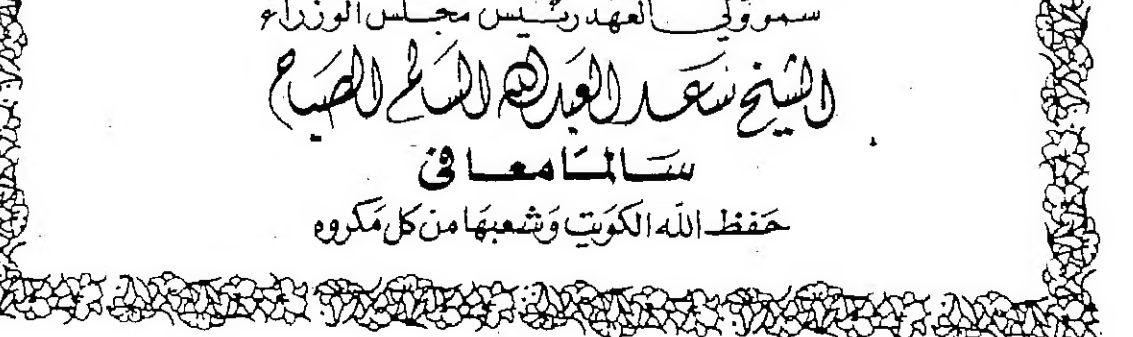 سمو ولي العهد رئيس مجلس الوزراء
الشيخ سَعد العَبدالله السَالم الصبَاح
سَـالمًا معـافى
حَفظ الله الكوَيت وَشعبهَا من كل مَكروه